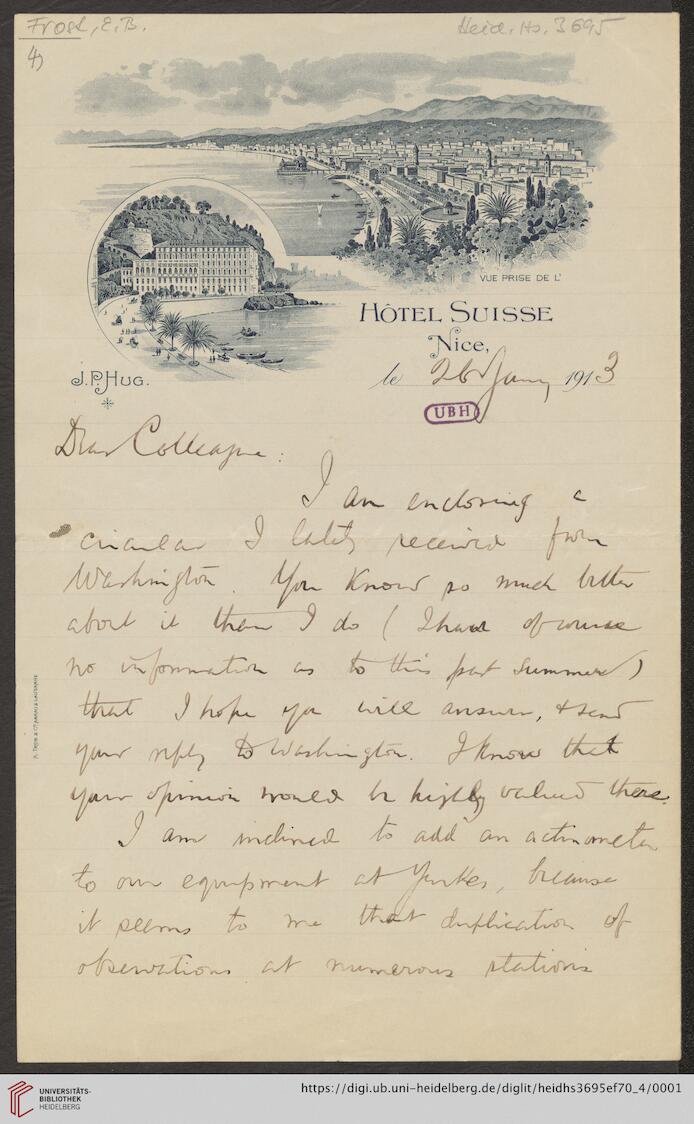 Frost, E. B.
Heid. Hs. 3695
4)
VUE PRISE DE L'
HÔTEL SUISSE
Nice,
J. P. HUG.
le 26 Jany 1913
UBH
Dear Colleague:
I am enclosing a
circular I lately received from
Washington. You know so much better
about it than I do (I have of course
no information as to this past summer)
that I hope you will answer, & send
your reply to Washington. I know that
your opinion would be highly valued there.
I am inclined to add an actinometer
to our equipment at Yerkes, because
it seems to me that duplication of
observations at numerous stations
UNIVERSITÄTS-
BIBLIOTHEK
HEIDELBERG
https://digi.ub.uni-heidelberg.de/diglit/heidhs3695ef70_4/0001